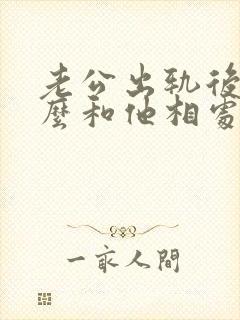 老公出轨後
麼和他相處
一人間